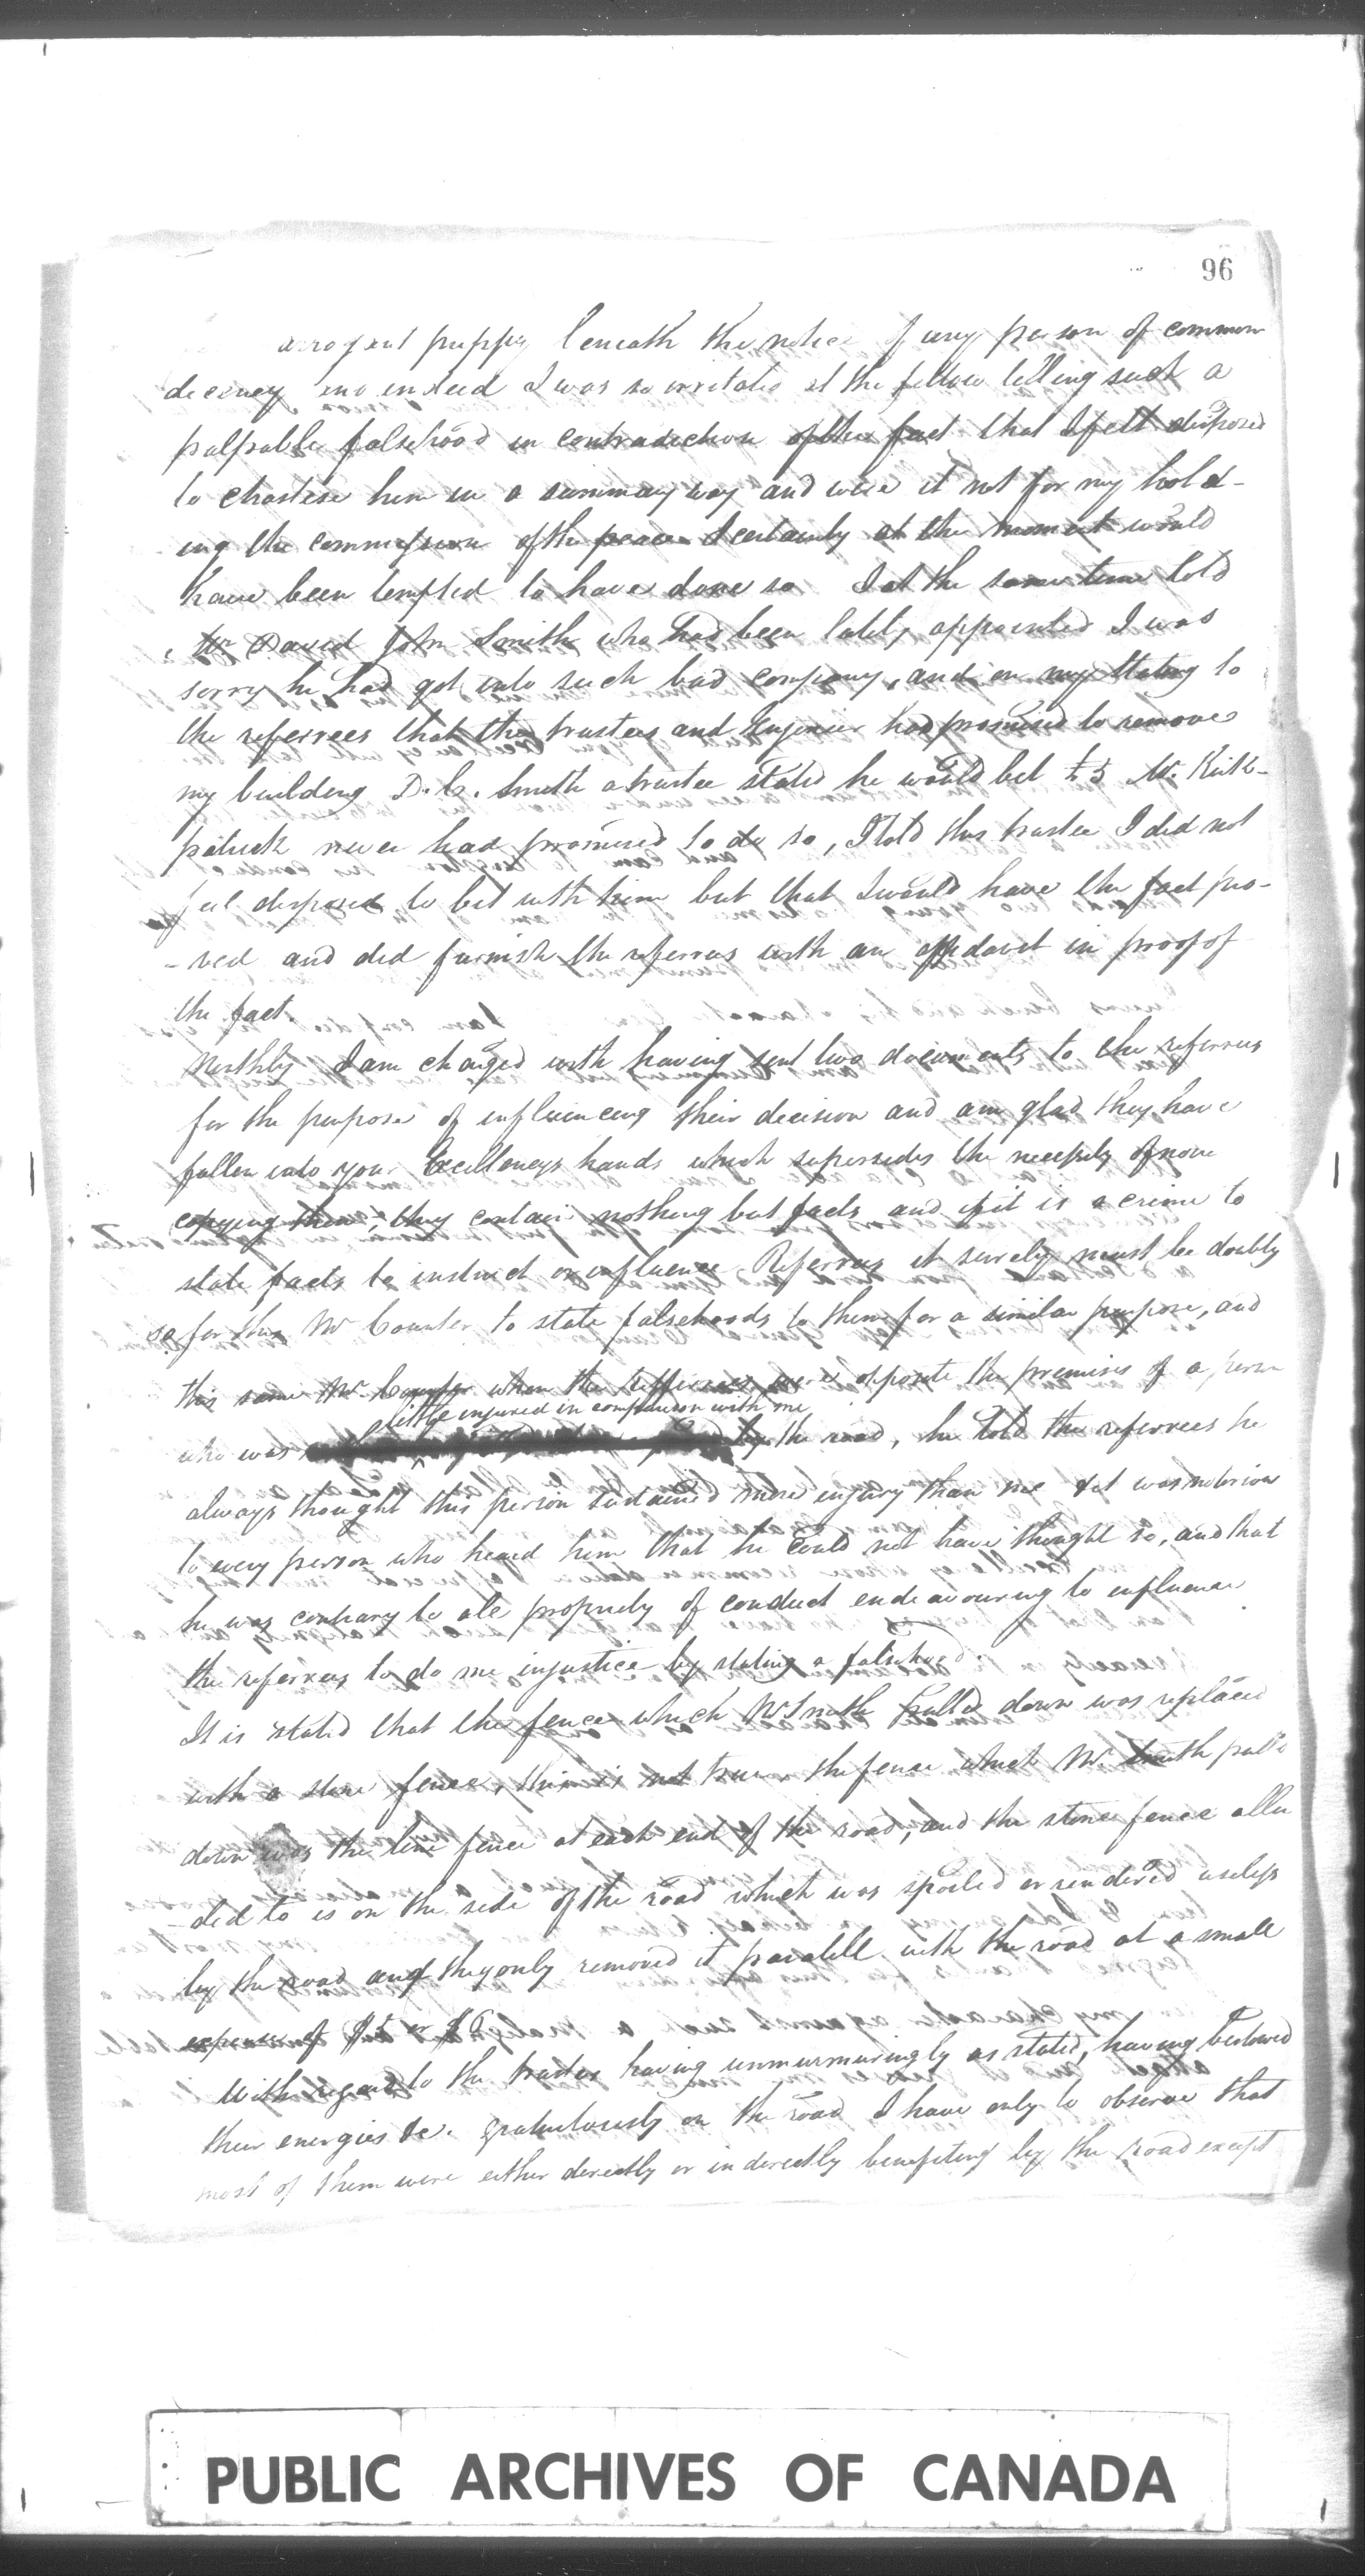 96
arrogant puppy beneath the notice of any person of common
decency and indeed I was so irritated at the fellow telling such a
palpable falsehood in contradiction of the fact that I felt disposed
to chastise him in a summary way and were it not for my hold-
ing the commission of the peace I certainly at the moment would
have been tempted to have done so I at the same time told
Mr David John Smith who had been lately appointed I was
sorry he had got into such bad company, and on my stating to
the referrees that the trustees and Engenier had promised to remove
my building D. J. Smith a trustee stated he would bet £5 Mr. Kirk-
patrick never had promised to do so, I told this trustee I did not
feel disposed to bet with him but that I would have the fact pro-
-ved and did furnish the referrees with an affidavit in proof of
the fact
Ninthly I am charged with having sent two documents to the referrees
for the purpose of influencing their decision and am glad they have
fallen into your Excellencys hands which supersedes the necessity of now
copying them, they contain nothing but facts and if it is a crime to
state facts to instruct or influence Referrees it surely must be doubly
so for this Mr Counter to state falsehoods to them for a similar purpose, and
this same Mr Counter when the refferrees were opposite the premises of a person
little injured in comparison with me
who was by the road, he told the referrees he
always thought this person sustained more injury than me yet was notorious
to every person who heard him that he could not have thought so, and that
he was contrary to all propriety of conduct endeavouring to influence
the referrees to do me injustice by stating a falsehood.
It is stated that the fence which Mr Smith pulled down was replaced
with a stone fence, this is not true the fence which Mr. Smith pull'd
down was the line fence at each end of the road, and the stone fence allu
-ded to is on the side of the road which was spoiled or rendered useless
by the road and they only removed it paralell with the road at a small
expense of £5 or £6
With regard to the trustees having unmurmuringly as stated, having bestowed
their energies &c. gratuitously on the road I have only to observe that
most of them were either directly or indirectly benefiting by the road except
PUBLIC ARCHIVES OF CANADA